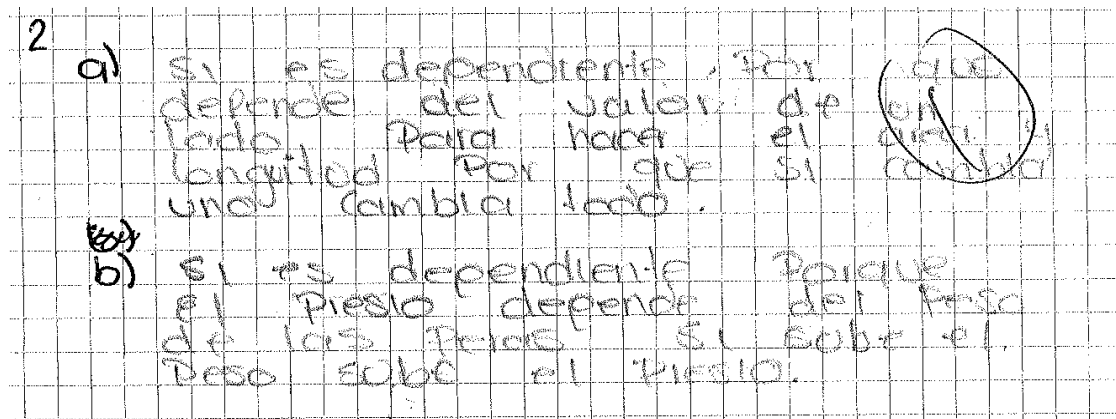 2
a) Si es dependiente. Por que
depende del valor de un
lado para hacer el area y
longuitod Por que si cambia
uno cambia todo.
b) Si es dependiente Porque
el Presio depende del Peso
de las Peras si sube el
Peso sube el Presio.